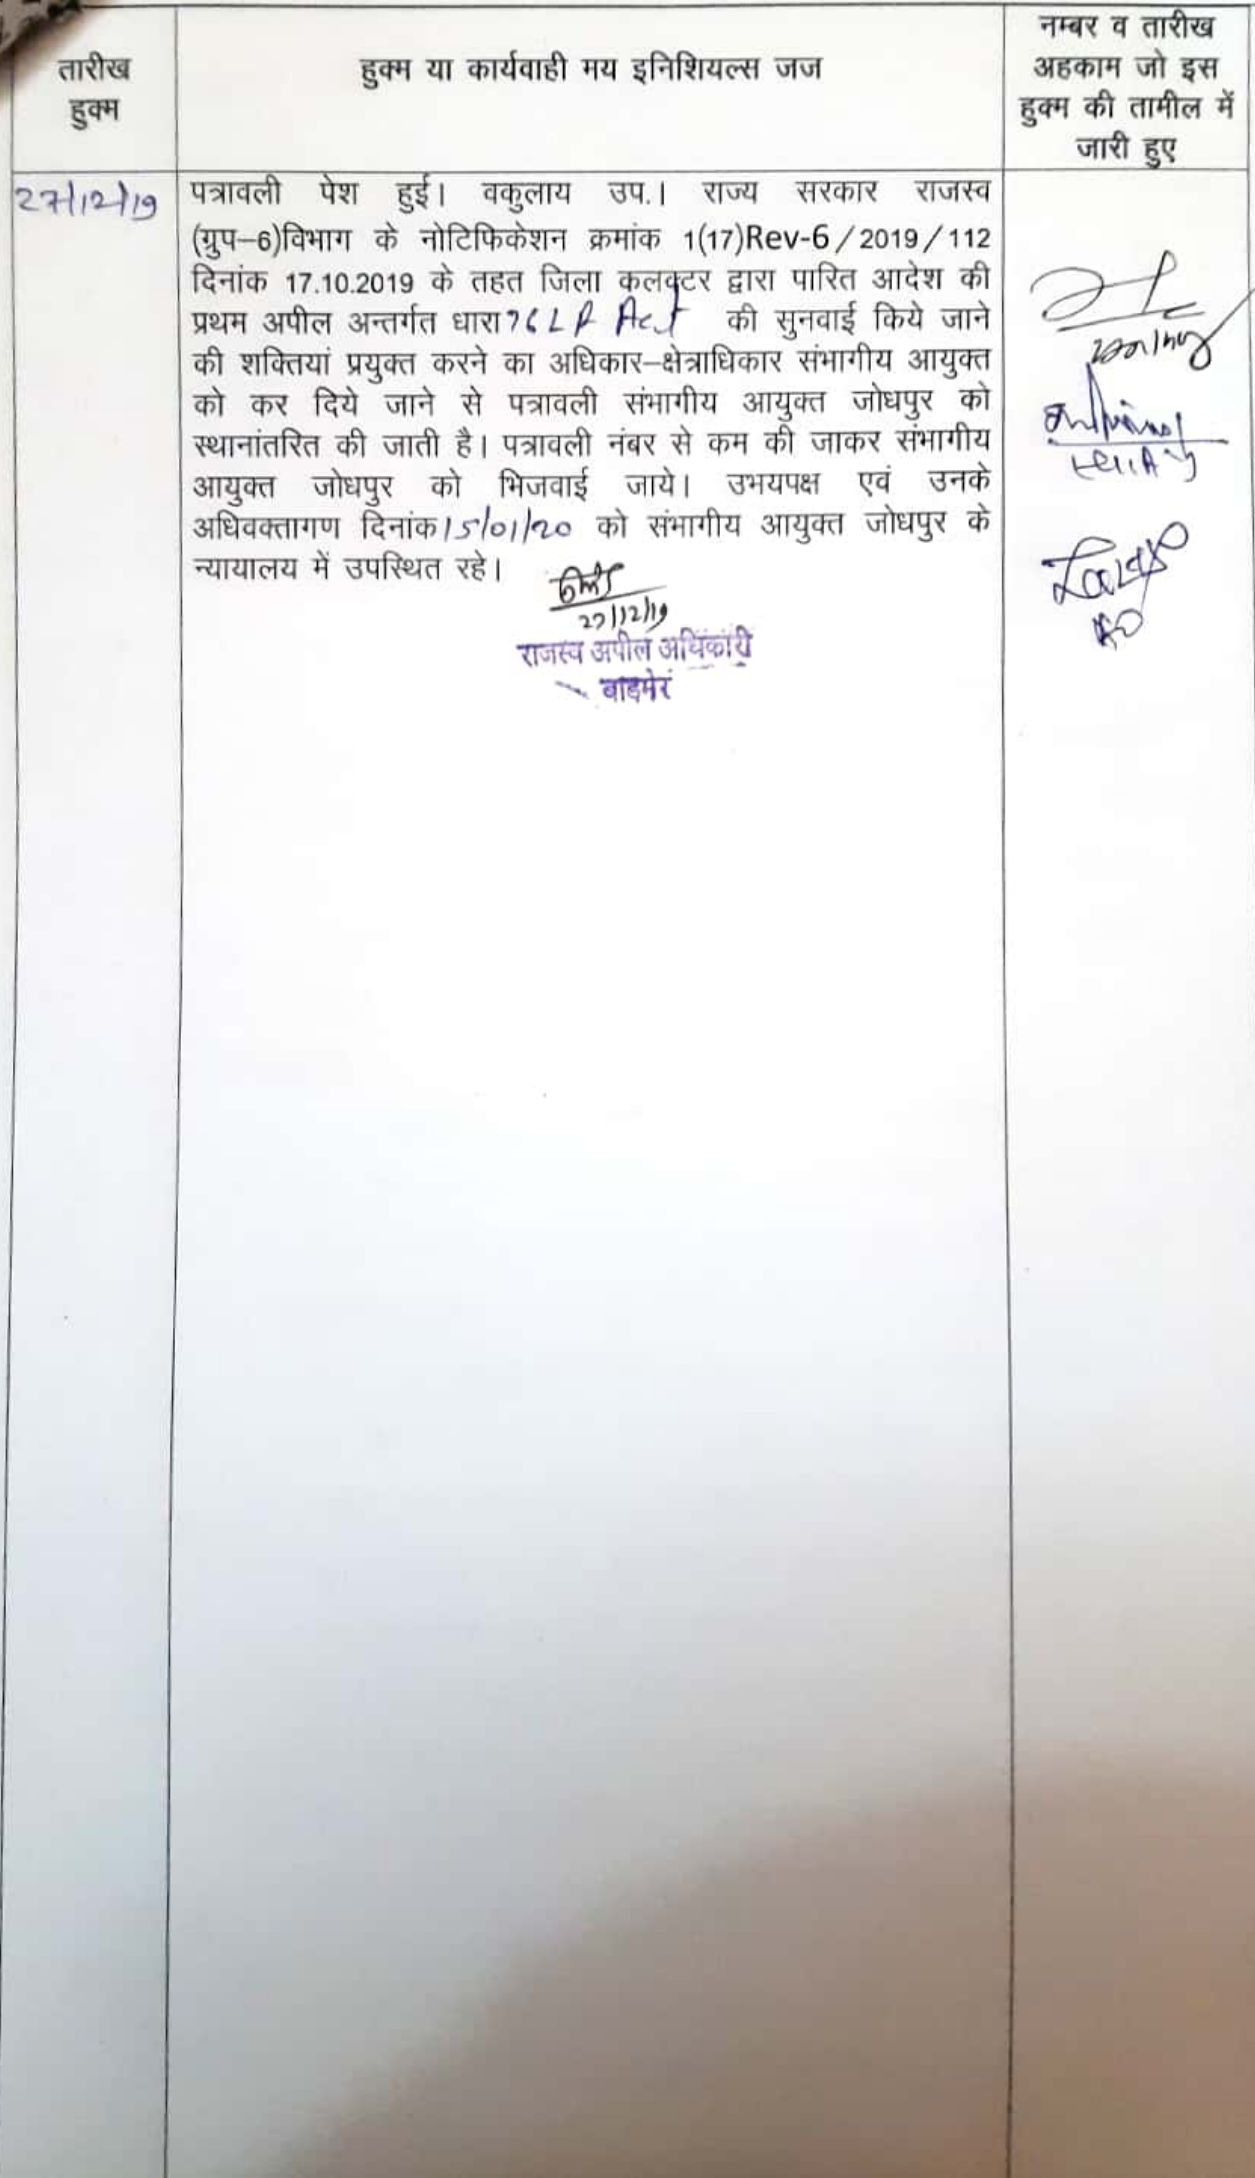 तारीख
हुक्म
हुक्म या कार्यवाही मय इनिशियल्स जज
नम्बर व तारीख
अहकाम जो इस
हुक्म की तामील में
जारी हुए
27/12/19
पत्रावली पेश हुई। वकुलाय उप.। राज्य सरकार राजस्व
(ग्रुप–6)विभाग के नोटिफिकेशन क्रमांक 1(17)Rev-6/2019/112
दिनांक 17.10.2019 के तहत जिला कलक्टर द्वारा पारित आदेश की
प्रथम अपील अन्तर्गत धारा 76 LR Act की सुनवाई किये जाने
की शक्तियां प्रयुक्त करने का अधिकार–क्षेत्राधिकार संभागीय आयुक्त
को कर दिये जाने से पत्रावली संभागीय आयुक्त जोधपुर को
स्थानांतरित की जाती है। पत्रावली नंबर से कम की जाकर संभागीय
आयुक्त जोधपुर को भिजवाई जाये। उभयपक्ष एवं उनके
अधिवक्तागण दिनांक 15/01/20 को संभागीय आयुक्त जोधपुर के
न्यायालय में उपस्थित रहे।
27/12/19
राजस्व अपील अधिकारी
बाड़मेर